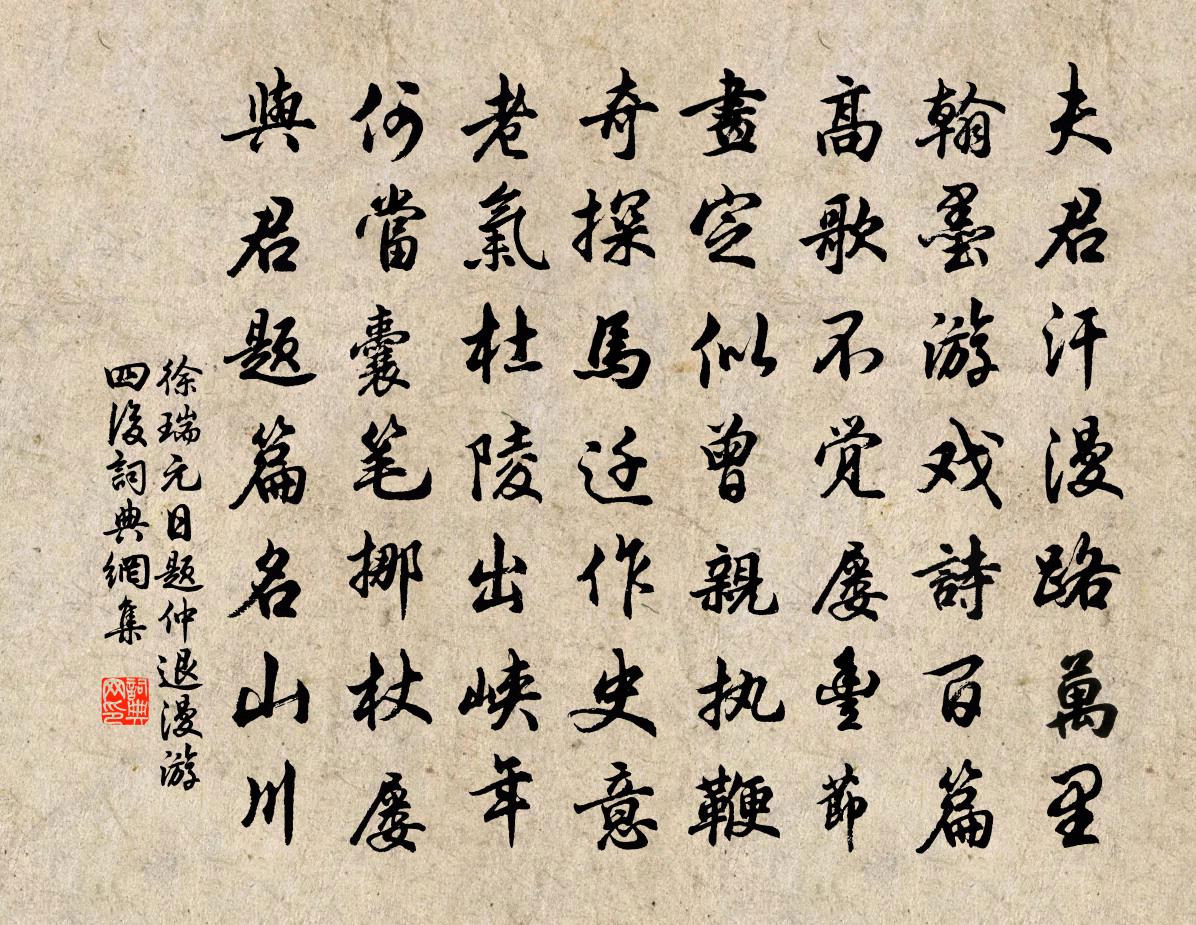 夫君汗漫路萬里
翰墨游戏詩百篇
高歌不觉屡豐節
畫定似曾親执鞭
奇探馬迁作史意
老氣杜陵出峡年
何當囊笔挪杖屡
與君题篇名山川
徐瑞元日题仲退漫游
四後詞典網集
詞典网印